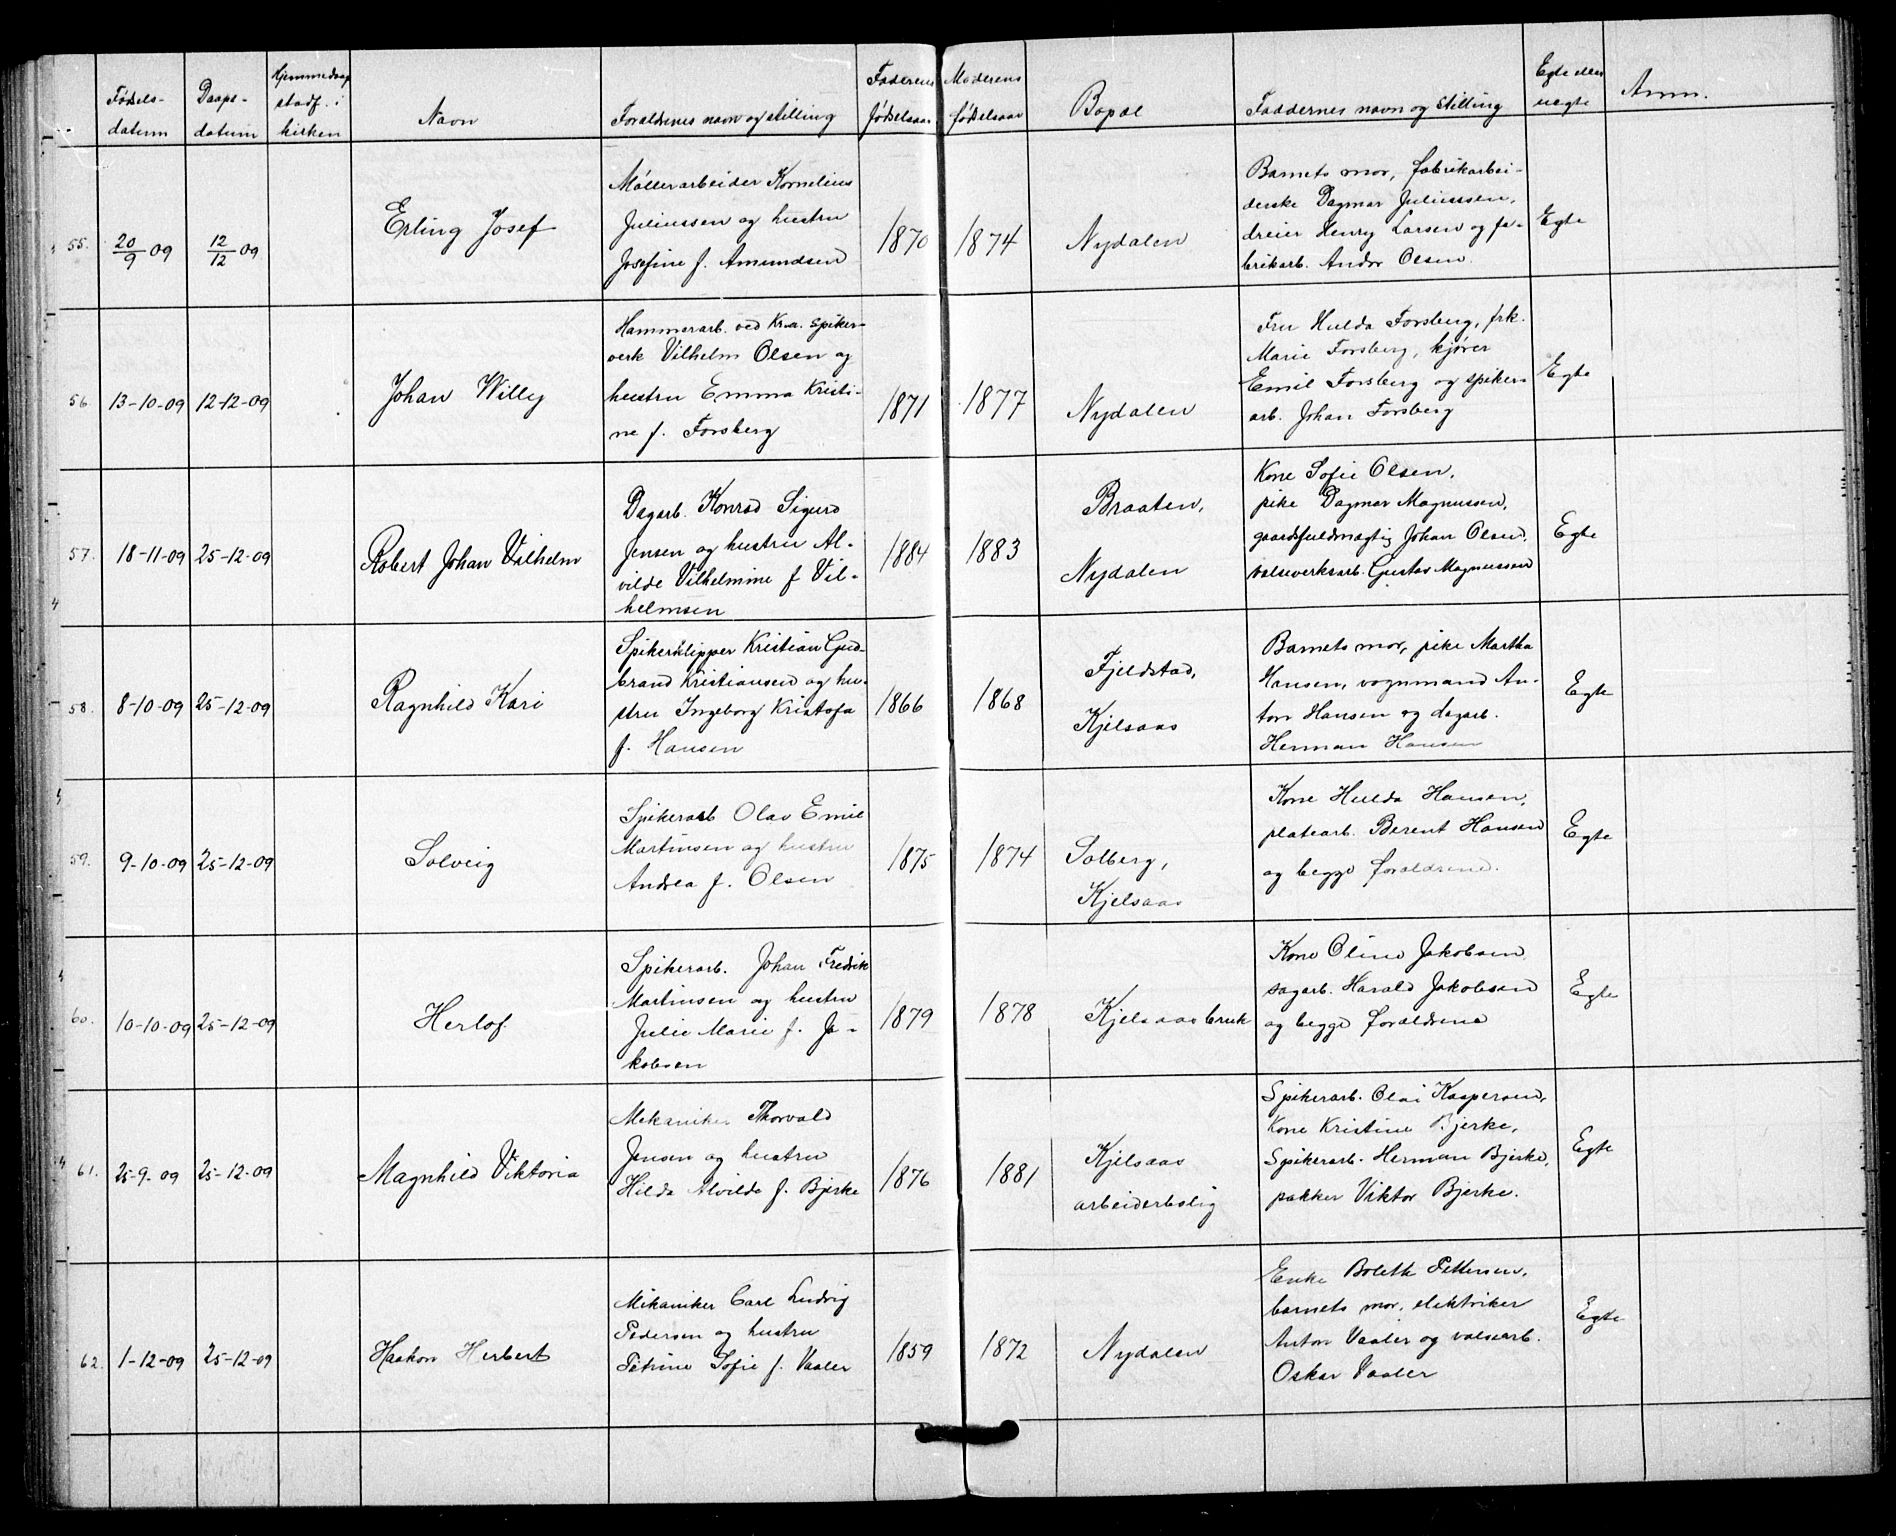 Fødels-
datum
Daaps-
datum
Hjemmedaap
stadf. i
kirken
Navn
Forældrenes navn og stilling
Faderens
fødselsaar
Moderens
fødselsaar
Bopæl
Faddernes navn og stilling
Egte eller
uegte
Anm.
55.
20/9 09
12/12 09
Erling Josef
Møllerarbeider Kornelius
Juliussen og hustru
Josefine f. Amundsen
1870
1874
Nydalen
Barnets mor, fabrikarbei-
derske Dagmar Juliussen,
dreier Henry Larsen og fa-
brikarb. Andor Olsen.
Egte
56
13-10-09
12-12-09
Johan Willy
Hammerarb. ved Kr.a. spiker-
verk Vilhelm Olsen og
hustru Emma Kristi-
ne f. Forsberg
1871
1877
Nydalen
Fru Hulda Forsberg, frk.
Marie Forsberg, kjører
Emil Forsberg og spiker-
arb. Johan Forsberg
Egte
57.
18-11-09
25-12-09
Robert Johan Vilhelm
Dagarb. Konrad Sigurd
Jensen og hustru Al-
vilde Vilhelmine f Vil-
helmsen
1884
1883
Braaten,
Nydalen
Kone Sofie Olsen,
pike Dagmar Magnussen,
gaardsfuldmægtig Johan Olsen,
valseverksarb. Gustav Magnussen
Egte
58.
8-10-09
25-12-09
Ragnhild Kari
Spikerklipper Kristian Gud-
brand Kristiansen og hu-
stru Ingeborg Kristofa
f. Hansen
1866
1868
Fjeldstad,
Kjelsaas
Barnets mor, pike Martha
Hansen, vognmand An-
ton Hansen og dagarb.
Herman Hansen
Egte
59.
9-10-09
25-12-09
Solveig
Spikerarb Olav Emil
Martinsen og hustru
Andrea f. Olsen
1875
1874
Solberg,
Kjelsaas
Kone Hulda Hansen,
platearb. Berent Hansen
og begge forældrene.
Egte
60.
10-10-09
25-12-09
Herlof
Spikerarb. Johan Fredrik
Martinsen og hustru
Julie Marie f. Ja-
kobsen
1879
1878
Kjelsaas bruk
Kone Oline Jakobsen
sagarb. Harald Jakobsen
og begge forældrene
Egte
61.
25-9-09
25-12-09
Magnhild Viktoria
Mekaniker Thorvald
Jensen og hustru
Hilda Alvilde f. Bjerke
1876
1881
Kjelsaas
arbeiderbolig
Spikerarb. Olai Kaspersen,
Kone Kristine Bjerke,
Spikerarb. Herman Bjerke,
pakker Viktor Bjerke.
Egte
62.
1-12-09
25-12-09
Haakon Herbert
Mekaniker Carl Ludvig
Pedersen og hustru
Petrine Sofie f. Vaaler
1859
1872
Nydalen
Enke Bolette Pettersen,
barnets mor, elektriker
Anton Vaaler og valsearb.
Oskar Vaaler
Egte